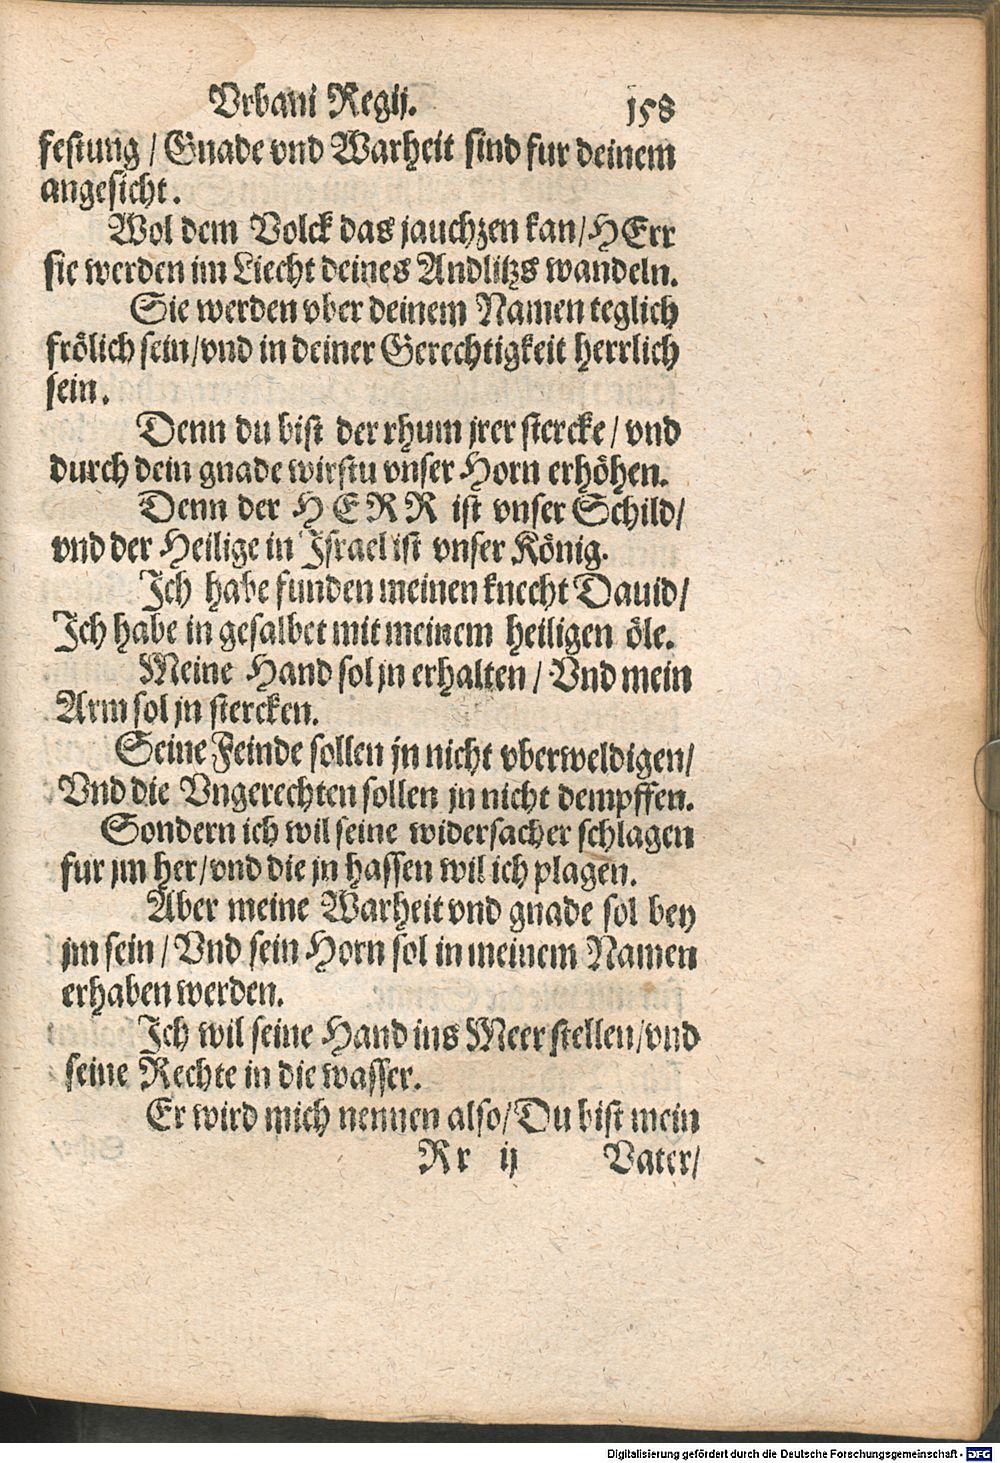 Vrbani Regij. 158
festung / Gnade vnd Warheit sind fur deinem
angesicht.
Wol dem Volck das jauchzen kan/HErr
sie werden im Liecht deines Andlitzs wandeln.
Sie werden vber deinem Namen teglich
frölich sein/vnd in deiner Gerechtigkeit herrlich
sein.
Denn du bist der rhum jrer stercke / vnd
durch dein gnade wirstu vnser Horn erhöhen.
Denn der HERR ist vnser Schild/
vnd der Heilige in Israel ist vnser König.
Ich habe funden meinen knecht Dauid/
Ich habe in gesalbet mit meinem heiligen öle.
Meine Hand sol jn erhalten / Vnd mein
Arm sol jn stercken.
Seine Feinde sollen jn nicht vberweldigen/
Vnd die Vngerechten sollen jn nicht dempffen.
Sondern ich wil seine widersacher schlagen
fur jm her/vnd die jn hassen wil ich plagen.
Aber meine Warheit vnd gnade sol bey
jm sein / Vnd sein Horn sol in meinem Namen
erhaben werden.
Ich wil seine Hand ins Meer stellen/vnd
seine Rechte in die wasser.
Er wird mich nennen also/Du bist mein
Rr ij Vater/
Digitalisierung gefördert durch die Deutsche Forschungsgemeinschaft - DFG